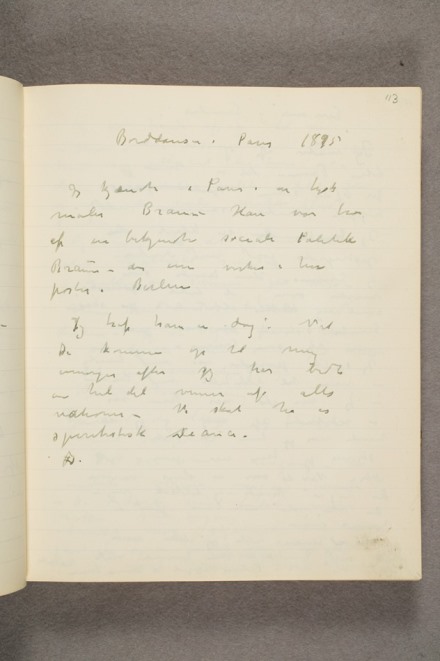 113
Borddansen i Paris 1895
Jeg kjendte i Paris en tysk
maler Braun Han var bror
af en bekjendte sociale Politik
Braun – der
poster i Berlin
Jeg traf ham en dag: Vil
De komme op til mig
imorgen aften Jeg har bedt
en hel del venner af alle
nationer – Vi skal ha en
spiritistisk seance.